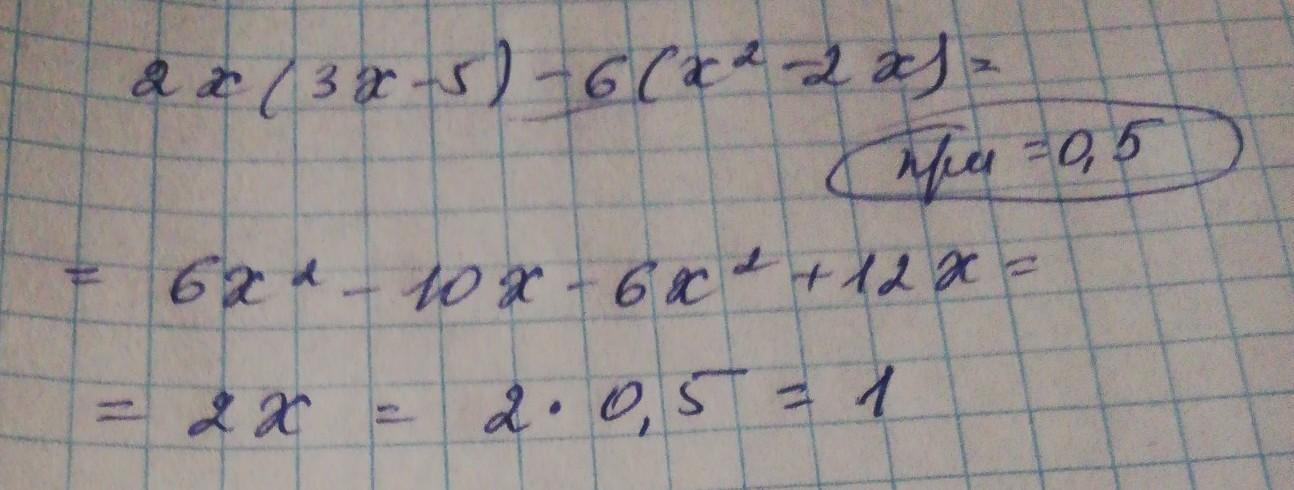 2x(3x-5)-6(x²-2x)=
при =0,5
= 6x²-10x-6x²+12x=
= 2x = 2·0,5 = 1